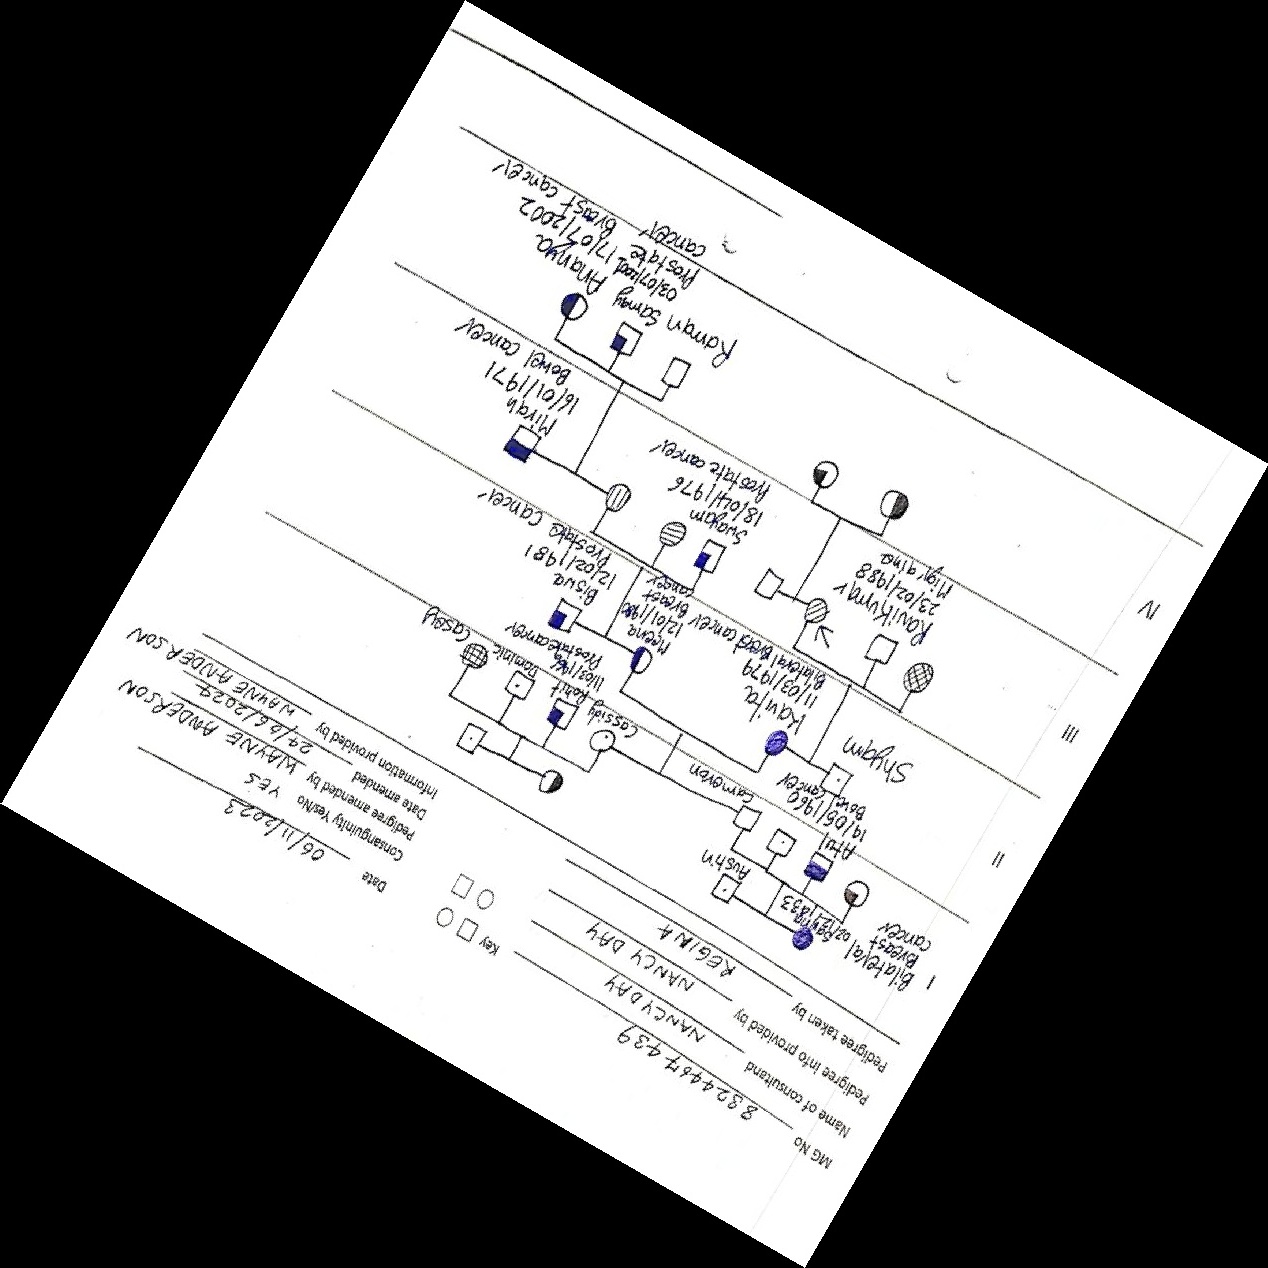 MG No 8324467439
Name of consultand NANCY DAY
Pedigree info provided by NANCY DAY
Pedigree taken by REGINA
Key
Date 06/11/2023
Consanguinity Yes/No YES
Pedigree amended by WAYNE ANDERSON
Date amended 24/06/2024
Information provided by WAYNE ANDERSON
I
Bilateral
Breast
cancer
02/12/1933
Austin
Atul
19/05/1960
Bowel cancer
Cameron
Cassidy
Rohit
11/03/1966
Prostate cancer
Dominic
Casey
II
Shyam
Kavita
11/03/1979
Bilateral Breast cancer
Meena
12/01/1980
Breast
cancer
Biswa
12/02/1981
Prostate cancer
III
Ravikumar
23/02/1988
Migraine
Swayam
18/04/1976
Prostate cancer
Mirah
16/01/1971
Bowel cancer
IV
Raman
Samay
03/07/2001
Prostate
cancer
Ananya
17/07/2002
Breast cancer